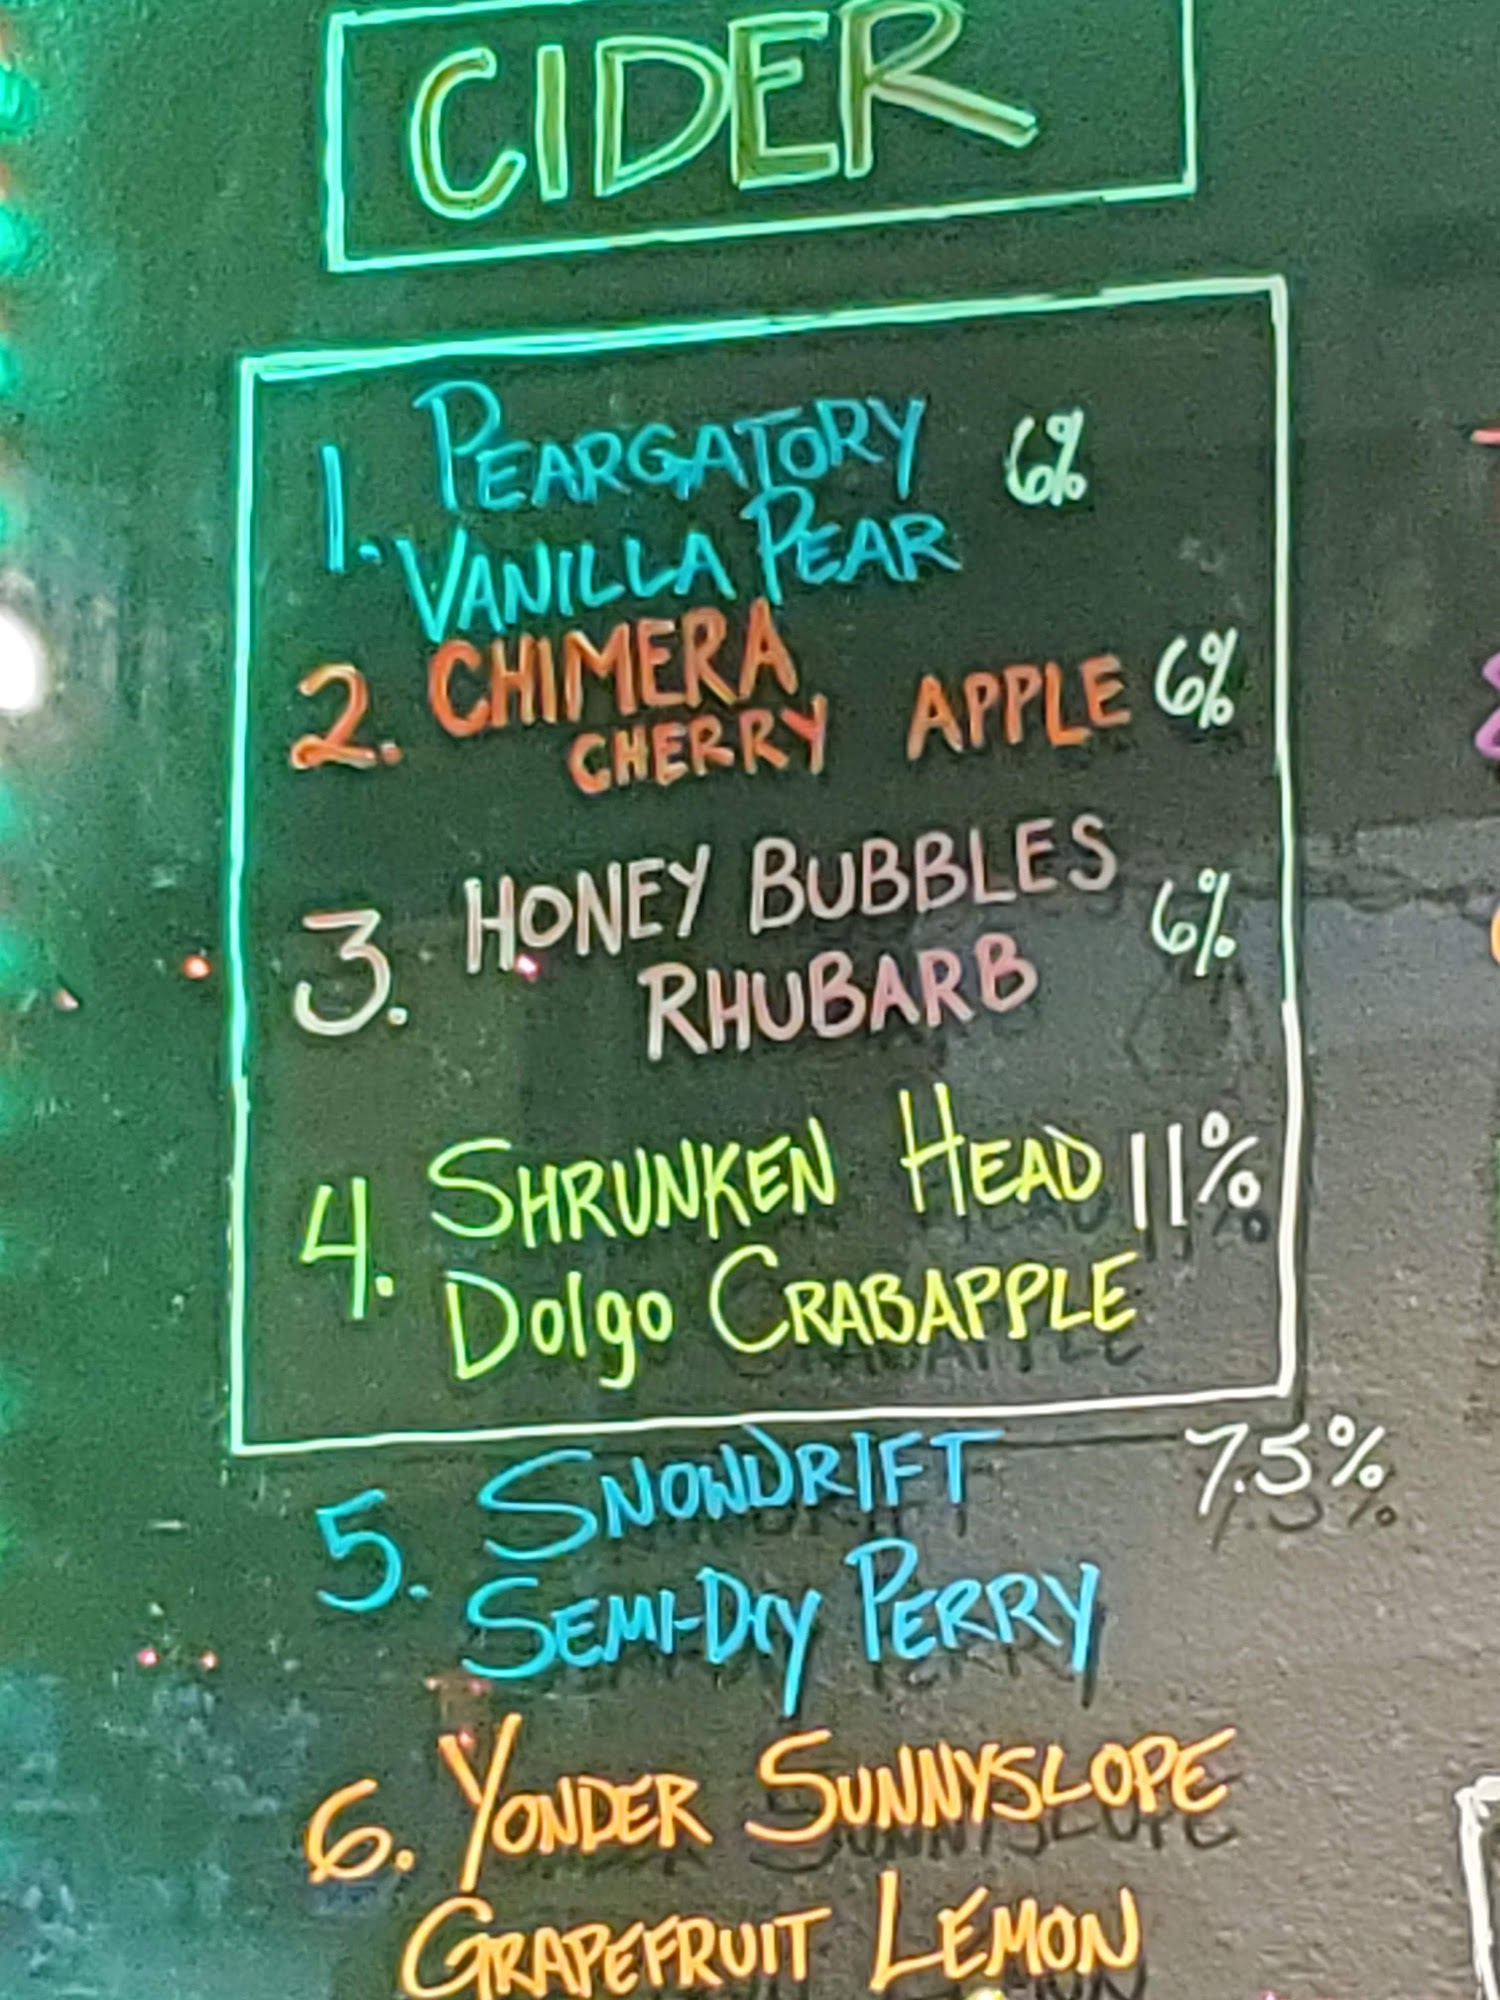 CIDER
1. PEARGATORY 6%
VANILLA PEAR
2. CHIMERA
CHERRY APPLE 6%
3. HONEY BUBBLES 6%
RHUBARB
4. SHRUNKEN HEAD 11%
Dolgo CRABAPPLE
5. SNOWDRIFT 7.5%
SEMI-Dry PERRY
6. YONDER SUNNYSLOPE
GRAPEFRUIT LEMON